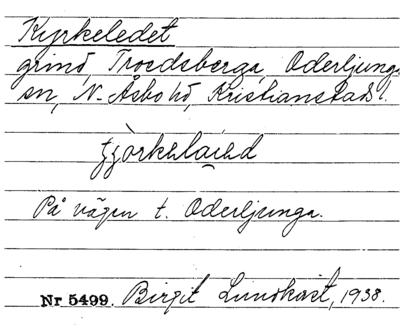 Kyrkeledet
grind, Troedsberga, Oderljunga
sn, N. Åsbo hd, Kristianstads l.
På vägen t. Oderljunga.
Nr 5499. Birgit Lundkvist, 1938.